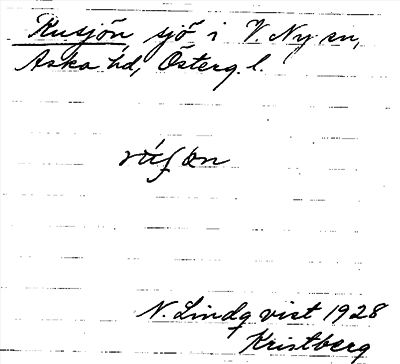 Rusjön sjö i V. Ny sn,
Aska hd, Österg. l.
N. Lindqvist 1928
Kristberg